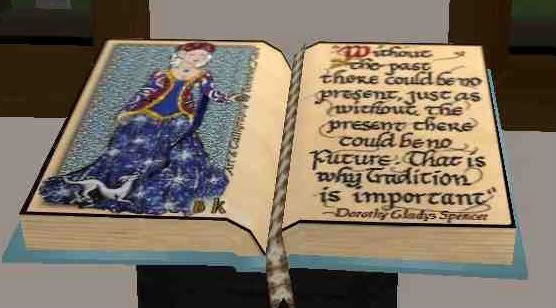 B K
Without
the past
there could be no
present, just as
without the
present there
could be no
Future. That is
why Tradition
is important"
-Dorothy Gladys Spencer